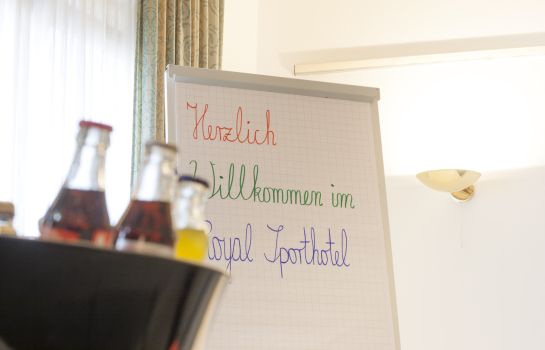 Herzlich
Willkommen im
Royal Sporthotel